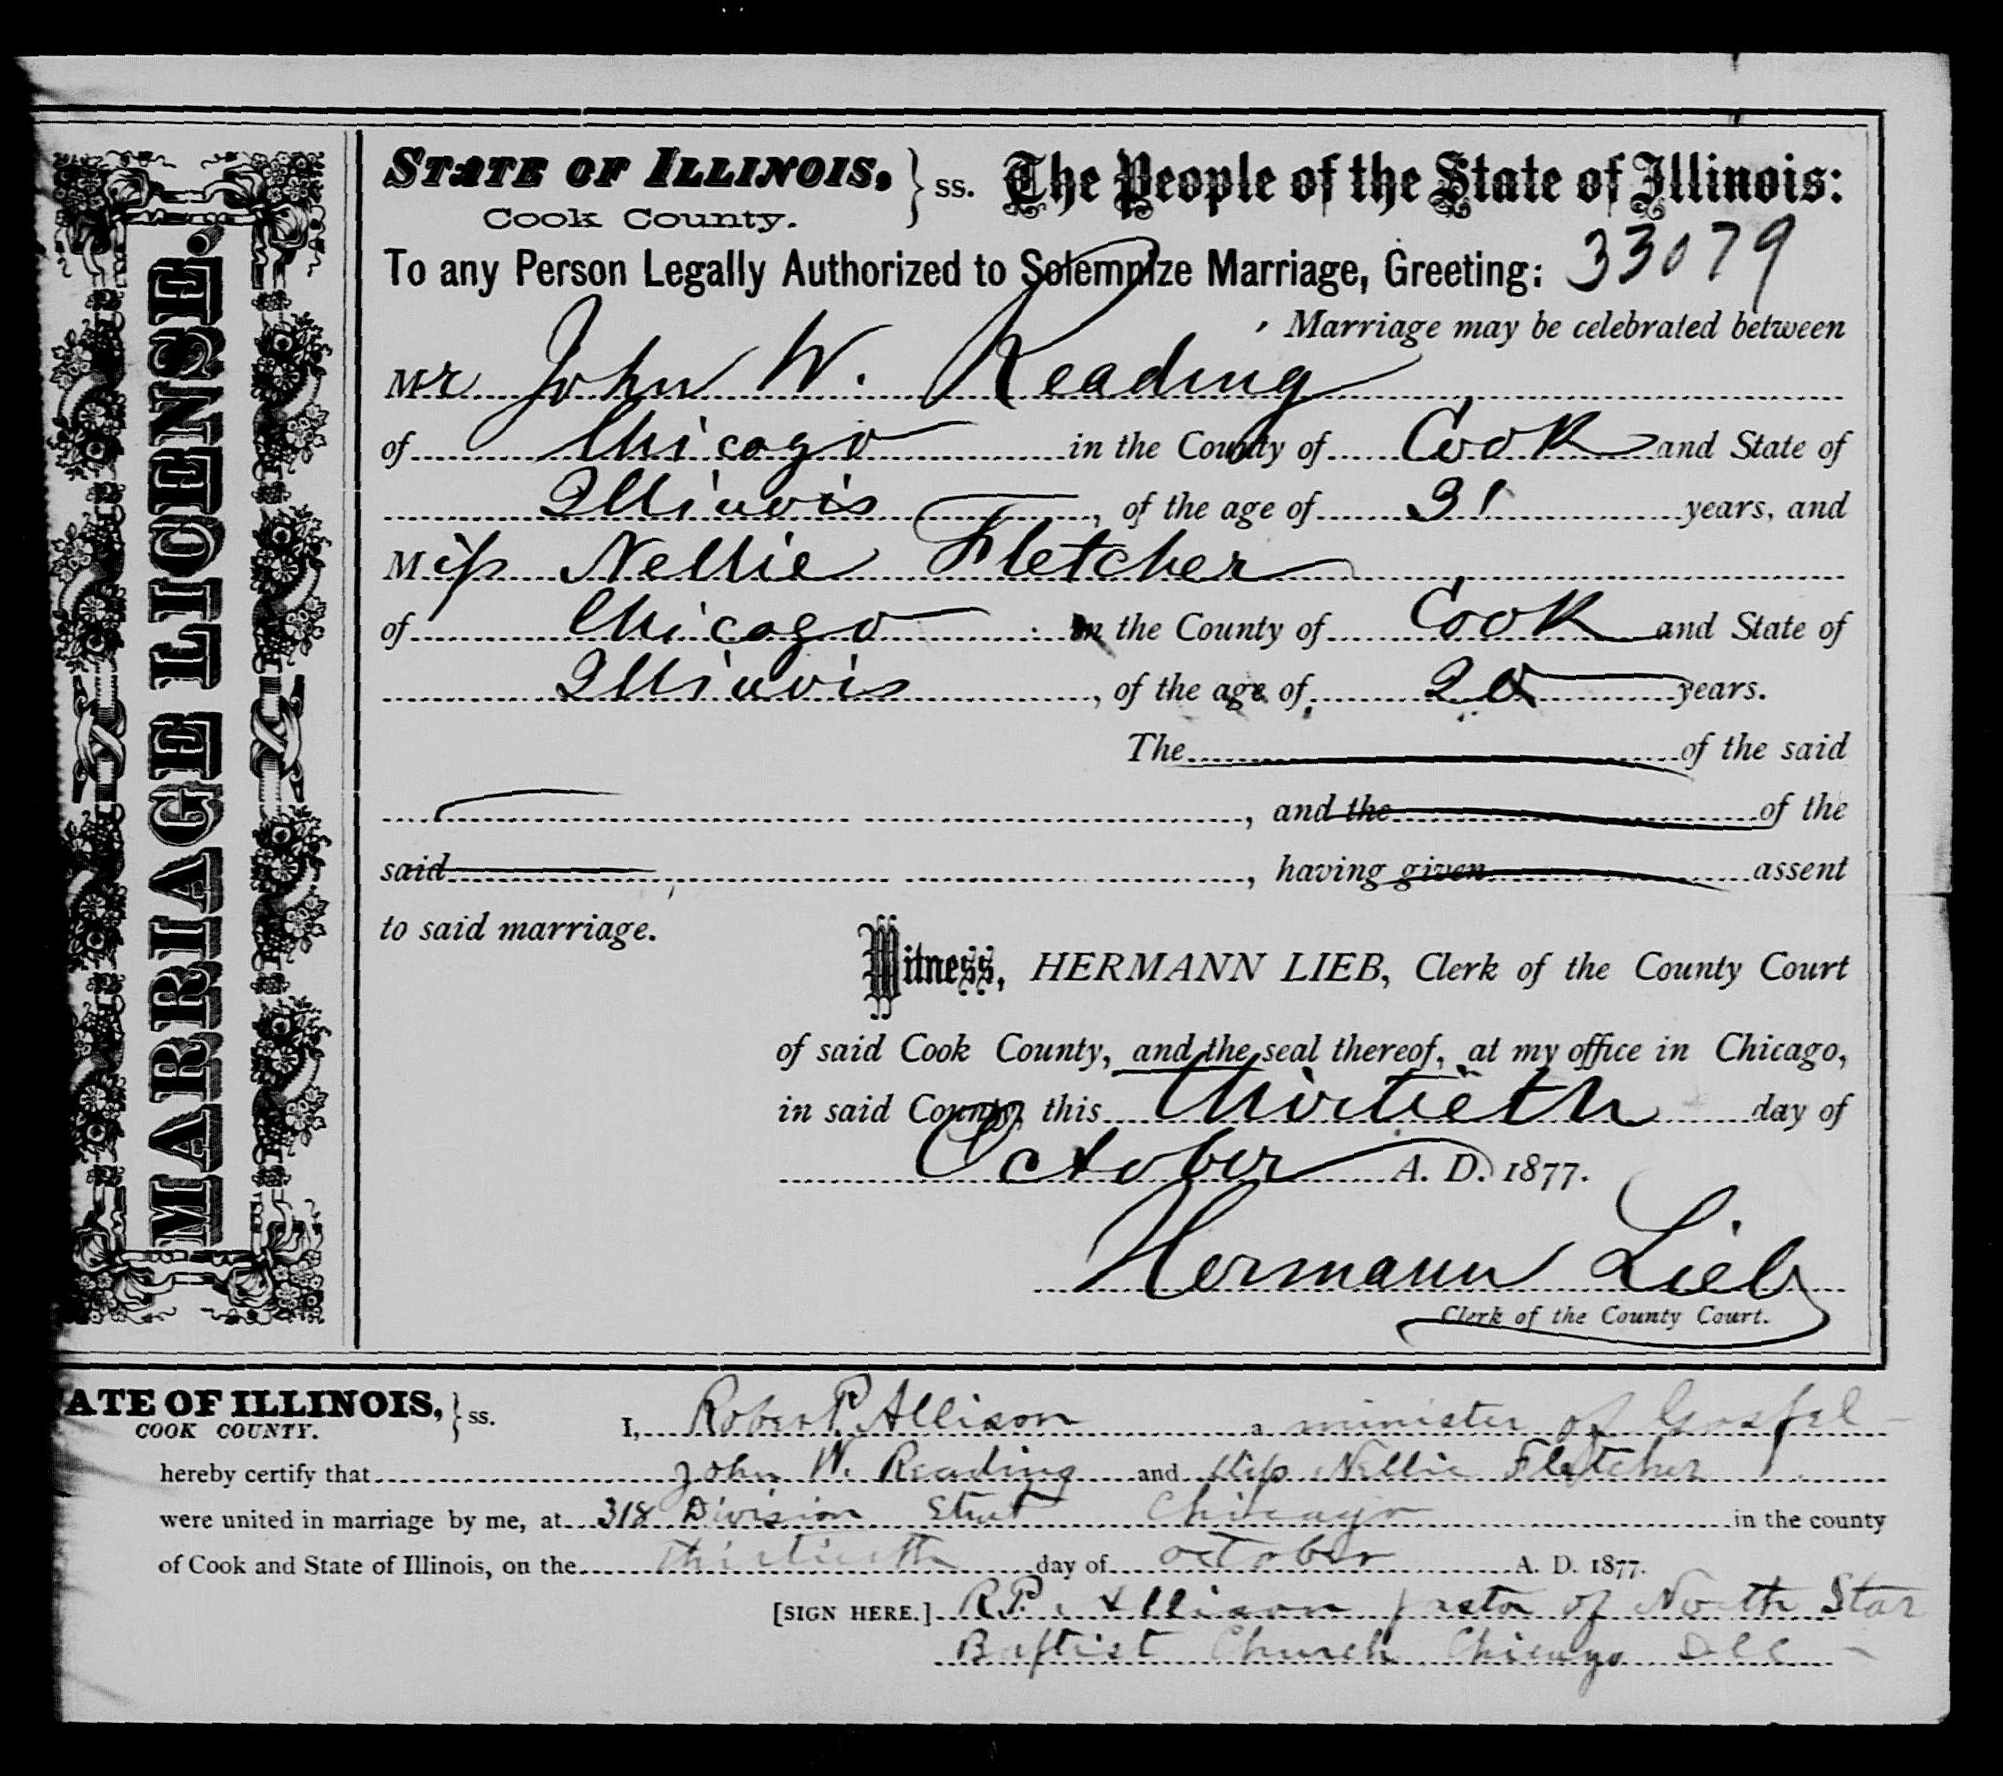 MARRIAGE LICENSE.
STATE OF ILLINOIS, } ss. The People of the State of Illinois:
Cook County.
To any Person Legally Authorized to Solemnize Marriage, Greeting: 33079
Marriage may be celebrated between
Mr John W. Reading
of Chicago in the County of Cook and State of
Illinois, of the age of 31 years, and
Miss Nellie Fletcher
of Chicago in the County of Cook and State of
Illinois, of the age of years.
The of the said
, and the of the
said , having given assent
to said marriage.
Witness, HERMANN LIEB, Clerk of the County Court
of said Cook County, and the seal thereof, at my office in Chicago,
in said County, this thirtieth day of
October A. D. 1877.
Hermann Lieb
Clerk of the County Court.
ATE OF ILLINOIS, } ss.
COOK COUNTY.
I, Robert P. Allison a minister of Gospel
hereby certify that John W. Reading and Miss Nellie Fletcher
were united in marriage by me, at 318 Division Street Chicago in the county
of Cook and State of Illinois, on the thirtieth day of october A. D. 1877.
[SIGN HERE.] R.P. Allison pastor of North Star
Baptist Church Chicago Ill